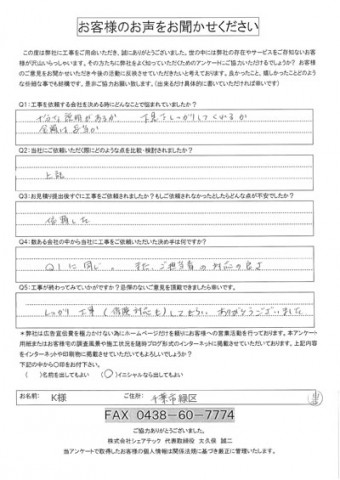 お客様のお声をお聞かせください
この度は弊社に工事をご用命いただき、誠にありがとうございました。世の中には弊社の存在やサービスをご存知ないお客
様が沢山いらっしゃいます。その方たちに弊社をよく知っていただくためのアンケートにご協力いただけるでしょうか？ お客様
のご意見をお聞かせいただき今後の活動に反映させていただきたいと考えております。良かったこと、嬉しかったことどのよう
な些細な事でも結構です。是非ご協力お願い致します。(出来るだけ具体的に書いていただければ幸いです)
Q1：工事を依頼する会社を決める時にどんなことで悩まれていましたか？
十分な説明があるか 下見をしっかりしてくれるか
金額は妥当か
Q2：当社にご依頼いただく際にどのような点を比較・検討されましたか？
上記
Q3：お見積り提出後すぐに工事をご依頼されましたか？もしご依頼されなかったとしたらどんな点が不安でしたか？
依頼した
Q4：数ある会社の中から当社に工事をご依頼いただいた決め手は何ですか？
Q1に同じ。 また、ご担当者の対応の良さ
Q5：工事が終わってみていかがですか？忌憚のないご意見を頂戴できましたら幸いです。
しっかり工事(保険対応も)してもらい ありがとうございました
＊弊社は広告宣伝費を極力かけない為にホームページだけを頼りにお客様への営業活動を行っております。本アンケート
用紙またはお客様宅の調査風景や施工状況を随時ブログ形式のインターネットに掲載させていただいております。上記内容
をインターネットや印刷物に掲載させていただいてもよろしいでしょうか？
下記の中から○印をお付け下さい。
( )名前を出してもよい (○)イニシャルなら出してもよい
お名前: K様 ご住所: 千葉市緑区
FAX 0438-60-7774
ご協力ありがとうございました。
株式会社シェアテック 代表取締役 大久保 誠二
当アンケートで取得したお客様の個人情報は関係法規に基づき厳正に管理いたします。